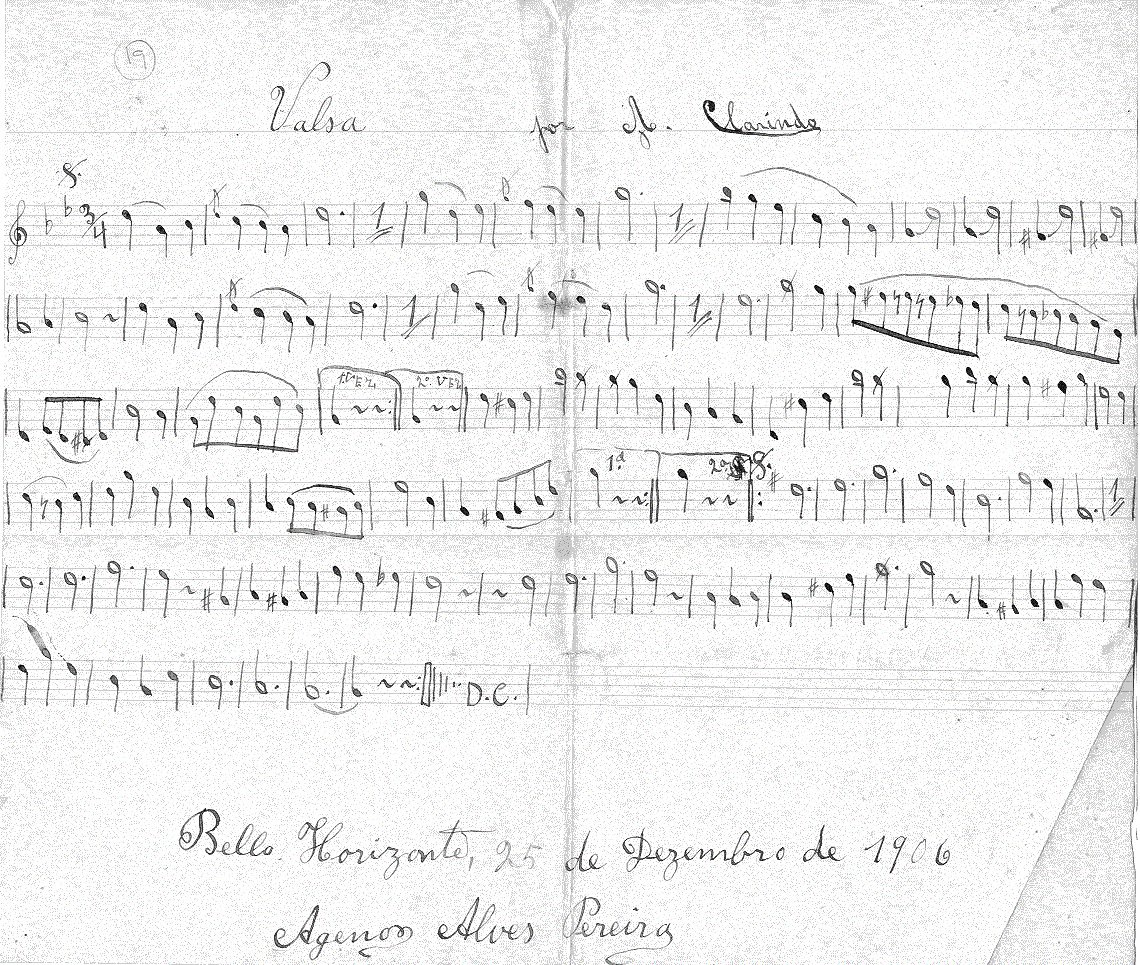 19
Valsa por A. Clarindo
3/4 1 1
1 1
1.VEZ 2.º VEZ
1.ª 2.ª 1
D.C.
Bello Horizonte, 25 de Dezembro de 1906
Agenor Alves Pereira